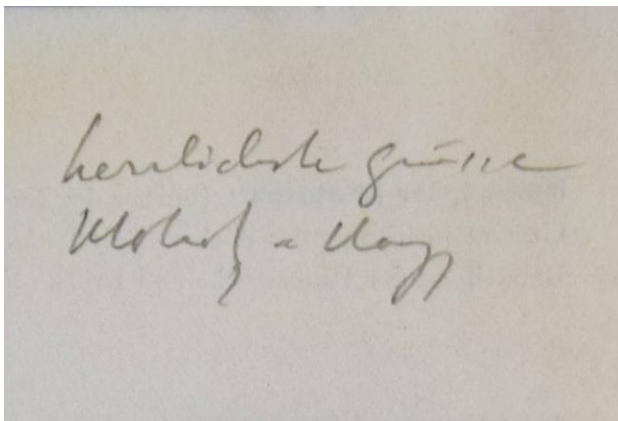 herzlichste grüsse
Moholy-Nagy